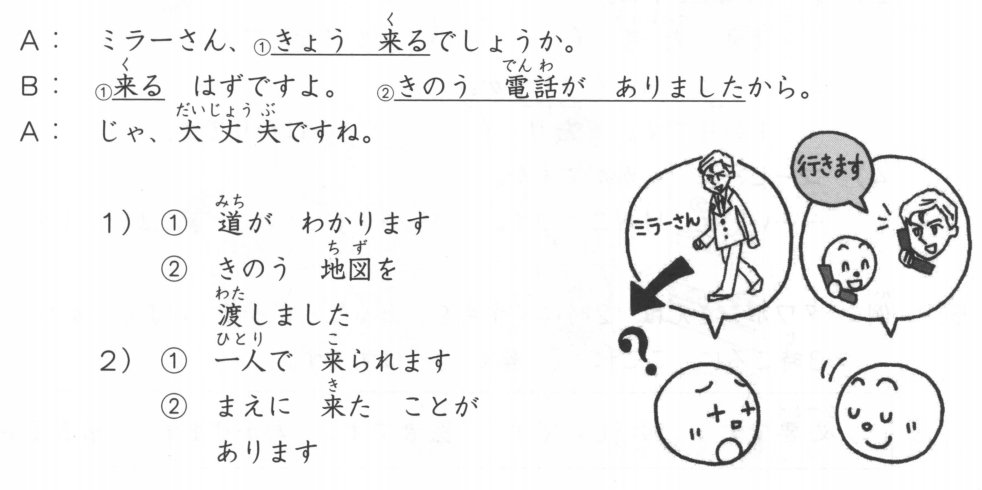 A： ミラーさん、①きょう　来るでしょうか。
B： ①来る　はずですよ。 ②きのう　電話が　ありましたから。
A： じゃ、大丈夫ですね。
1） ① 道が　わかります
② きのう　地図を
渡しました
2） ① 一人で　来られます
② まえに　来た　ことが
あります
ミラーさん
?
行きます